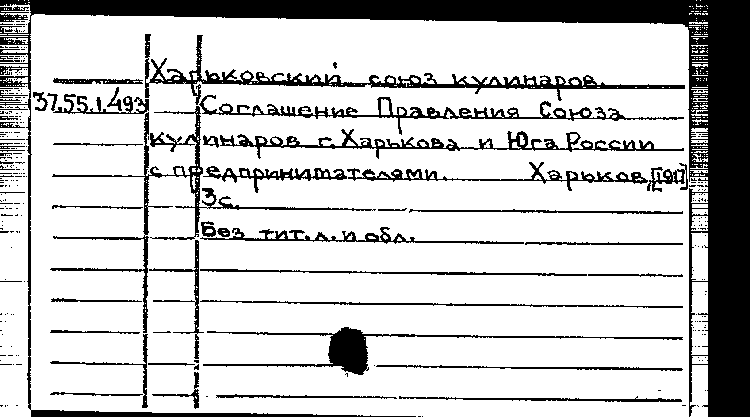 Харьковский союз кулинаров.
37.55.1.493 Соглашение Правления Союза
кулинаров г. Харькова и Юга России
с предпринимателями. Харьков,
3с.
Без тит.л. и обл.